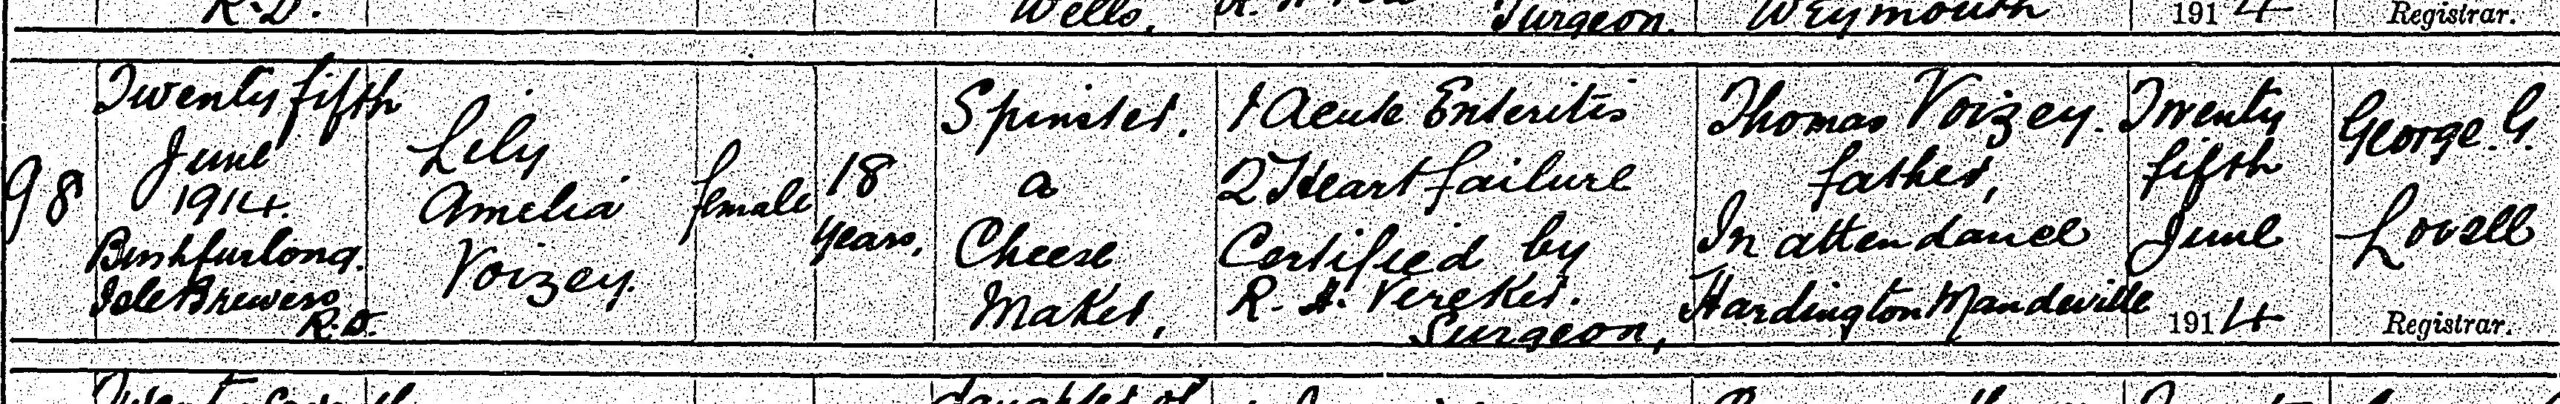 R.D.
Wells,
Surgeon.
Weymouth
1914
Registrar.
98
Twenty fifth
June
1914.
Bushfurlong.
Isle Brewers
R.D.
Lily
Amelia
Voizey.
female
18
years,
Spinster.
a
Cheese
Maker,
1 Acute Enteritis
2 Heart failure
Certified by
R. H. Vereker.
Surgeon,
Thomas Voizey.
father,
In attendance
Hardington Mandeville
Twenty
fifth
June
1914
George. G.
Lovell
Registrar.
daughter of